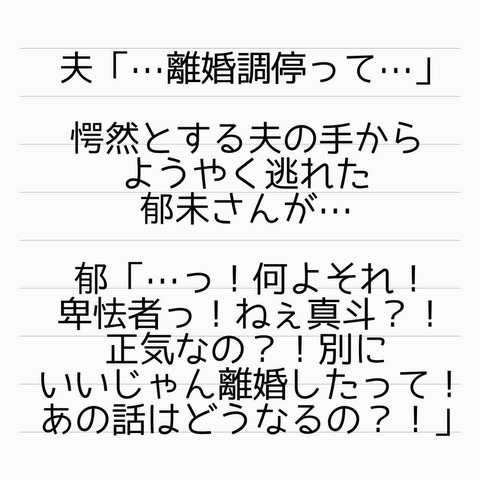 夫「…離婚調停って…」
愕然とする夫の手から
ようやく逃れた
郁未さんが…
郁「…っ！何よそれ！
卑怯者っ！ねぇ真斗？！
正気なの？！別に
いいじゃん離婚したって！
あの話はどうなるの？！」